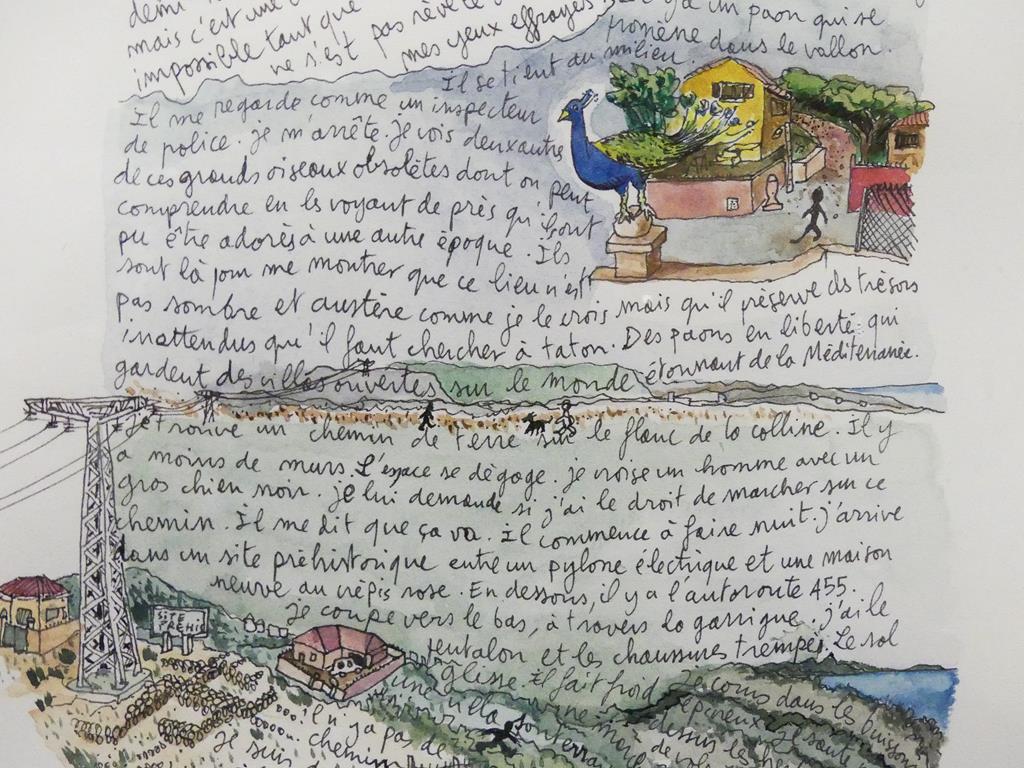 demi
mais c'est une
impossible tant que
ne s'est pas révélé
mes yeux effrayés y a un paon qui se
promène dans le vallon.
Il se tient au milieu.
Il me regarde comme un inspecteur
de police. je m'arrête. je vois deux autres
de ces grands oiseaux obsolètes dont on peut
comprendre en les voyant de près qu'ils ont
pu être adorés à une autre époque. Ils
sont là pour me montrer que ce lieu n'est
pas sombre et austère comme je le crois mais qu'il réserve des trésors
inattendus qu'il faut chercher à taton. Des paons en liberté qui
gardent des villas ouvertes sur le monde étonnant de la Méditerranée.
Je trouve un chemin de terre sur le flanc de la colline. Il y
a moins de murs. L'espace se dégage. je croise un homme avec un
gros chien noir. je lui demande si j'ai le droit de marcher sur ce
chemin. Il me dit que ça va. Il commence à faire nuit. j'arrive
dans un site préhistorique entre un pylone électrique et une maison
neuve au crépis rose. En dessous, il y a l'autoroute 455.
Je coupe vers le bas, à travers la garrigue. j'ai le
pentalon et les chaussures trempés. Le sol
glisse. Il fait froid. Je cours dans les buissons
épineux. Il faut
une villa
Il n'y a pas de
chemin
Je suis